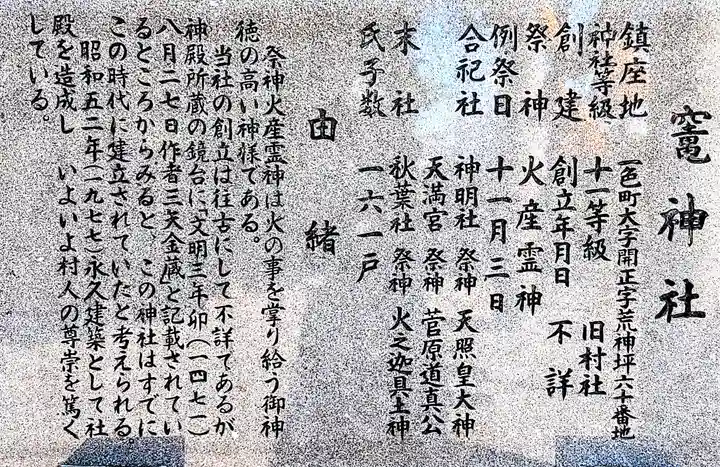 竈神社
鎮座地 一色町大字開正字荒神坪六十番地
神社等級 十一等級 旧村社
創建 創立年月日 不詳
祭神 火産霊神
例祭日 十一月三日
合祀社 神明社 祭神 天照皇大神
天満宮 祭神 菅原道真公
末社 秋葉社 祭神 火之迦具土神
氏子数 一六一戸
由緒
祭神火産霊神は火の事を掌り給う御神
徳の高い神様である。
当社の創立は往古にして不詳であるが
神殿所蔵の鏡台に「文明三年卯(一四七一)
八月二七日作者三矢金蔵」と記載されてい
るところからみると、この神社はすでに
この時代に建立されていたと考えられる。
昭和五二年(一九七七)永久建築として社
殿を造成し いよいよ村人の尊崇を篤く
している。